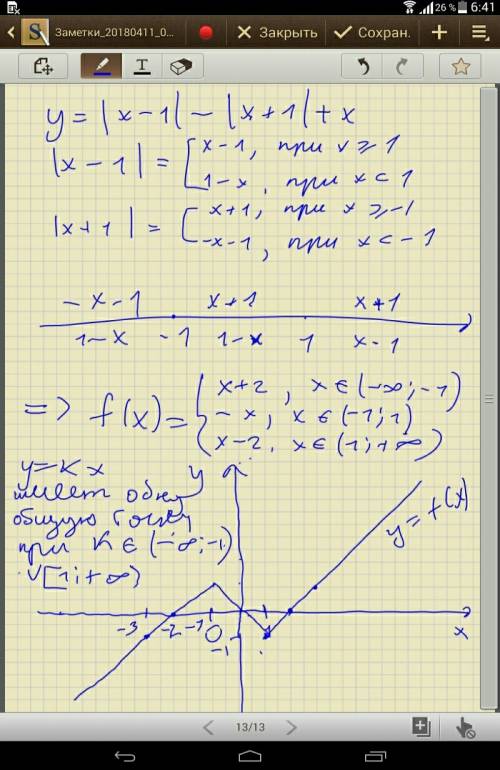 26 % 6:41
Заметки_20180411_0... Закрыть Сохран.
y = |x-1| - |x+1| + x
|x-1| = [x-1, при x ⩾ 1
1-x, при x < 1
|x+1| = [x+1, при x ⩾ -1
-x-1, при x < -1
-x-1 x+1 x+1
1-x -1 1-x 1 x-1
=> f(x) = { x+2, x ∈ (-∞; -1)
-x, x ∈ (-1; 1)
x-2, x ∈ (1; +∞)
y = kx
имеет одну
общую точку
при k ∈ (-∞; -1)
∪ [1; +∞)
y
y = f(x)
-3 -2 -1 0 1 x
-1
13/13